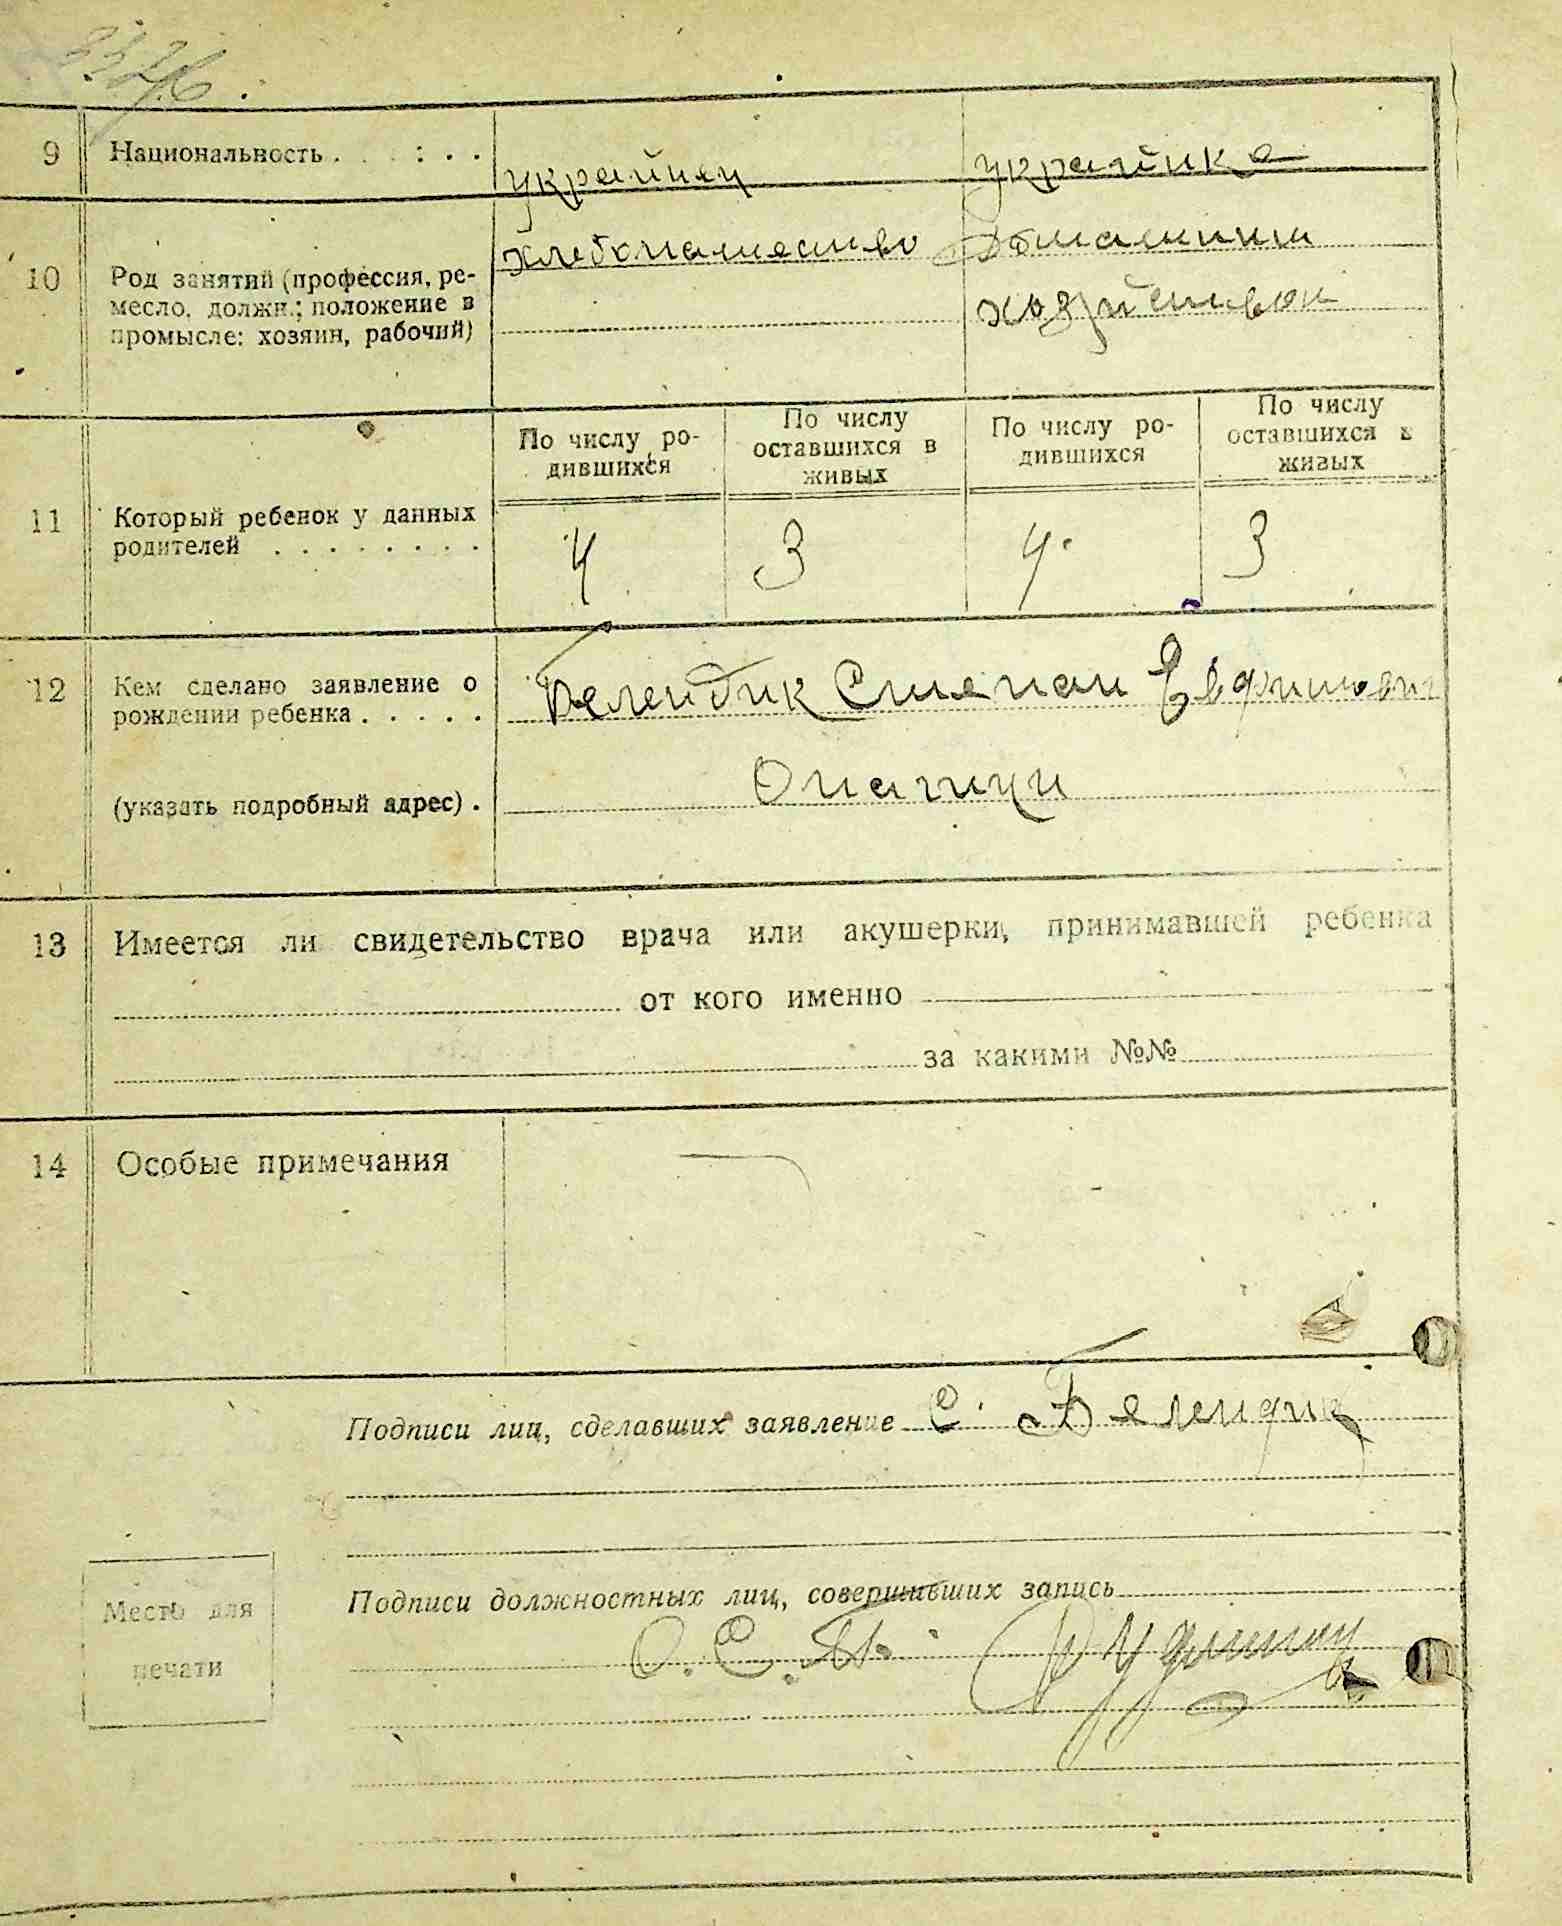 9 Национальность . . : . .
украйнец
украинка
10 Род занятий (профессия, ре-
месло, должн.; положение в
промысле: хозяин, рабочий)
хлебопашество
домашним
хозяйством
11 Который ребенок у данных
родителей . . . . . . . .
По числу ро-
дившихся
По числу
оставшихся в
живых
По числу ро-
дившихся
По числу
оставшихся в
живых
4 3 4 3
12 Кем сделано заявление о
рождении ребенка . . . . .
Белендик Степан Евфимович
(указать подробный адрес) .
13 Имеется ли свидетельство врача или акушерки, принимавшей ребенка
от кого именно
за какими №№
14 Особые примечания
Подписи лиц, сделавших заявление С. Белендик
Место для
печати
Подписи должностных лиц, совершивших запись